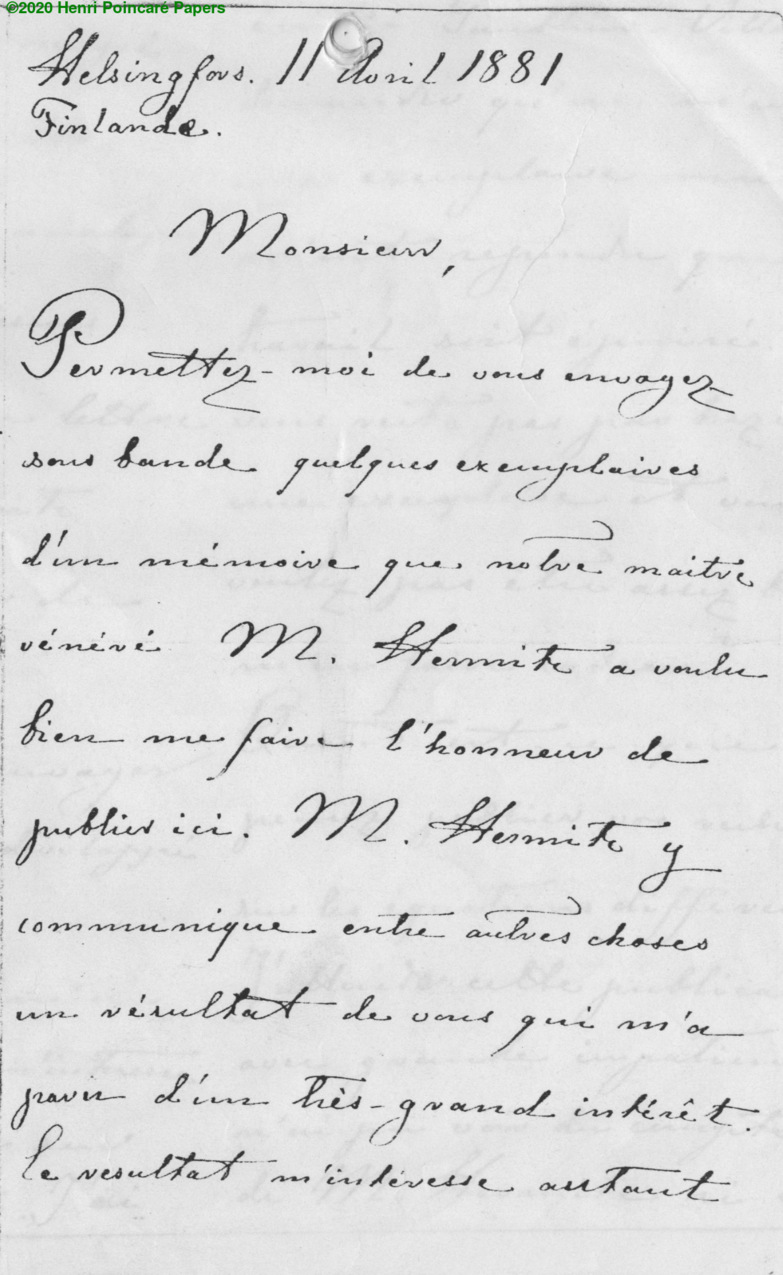 ©2020 Henri Poincaré Papers
Helsingfors. 11 Avril 1881
Finlande.
Monsieur,
Permettez-moi de vous envoyez
sous bande quelques exemplaires
d'un mémoire que notre maitre
vénéré M. Hermite a voulu
bien me faire l'honneur de
publier ici. M. Hermite y
communique entre autres choses
un résultat de vous qui m'a
paru d'un très-grand intérêt.
Ce resultat m'intéresse autant